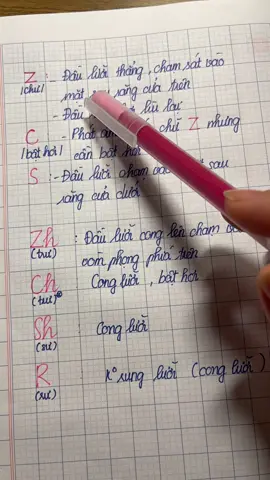 Z : - Đầu lưỡi thẳng, chạm sát vào
/chư/ mặt răng cửa trên
- Đầu lùi lại
C - Phát chữ Z nhưng
/bật hơi/ cần bật hơi
S : - Đầu lưỡi chạm sau
răng cửa dưới
Zh : Đầu lưỡi cong lên chạm
(trư) vòm phong phía trên
Ch : Cong lưỡi, bật hơi
(trư)
Sh : Cong lưỡi
(sư)
R : rung lưỡi (cong lưỡi)
(sư)